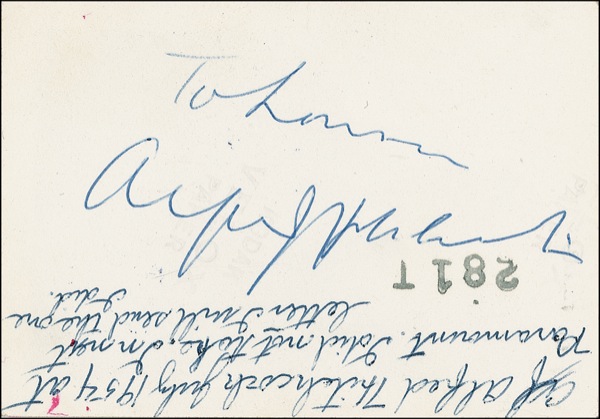 To
Alfred Hitchcock
281T
of Alfred Hitchcock July 1954 at
Paramount. I did not take. In next
letter I will send the one
I did.